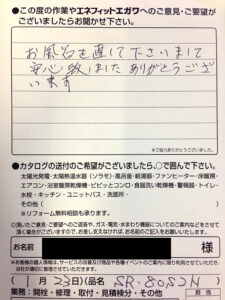 ●この度の作業やエネフィットエガワへのご意見・ご要望が
ございましたらお聞かせ下さい。
お風呂を直して下さいまして
安心致しました ありがとうござ
います
※ご協力ありがとうございました。
●カタログの送付のご希望がございましたら、○で囲んで下さい。
太陽光発電・太陽熱温水器(ソーラ)・風呂釜・給湯器・ファンヒーター・床暖房・
エアコン・浴室暖房乾燥機・ピピッとコンロ・食器洗い乾燥機・警報器・トイレ
・水栓・キッチン・ユニットバス・洗面所・
その他( )
※リフォーム無料相談も承ります。
お名前 様
当社が適切に管理させていただきます。
1月23日(品名)
業務:開栓・修理・取付・見積検分・その他